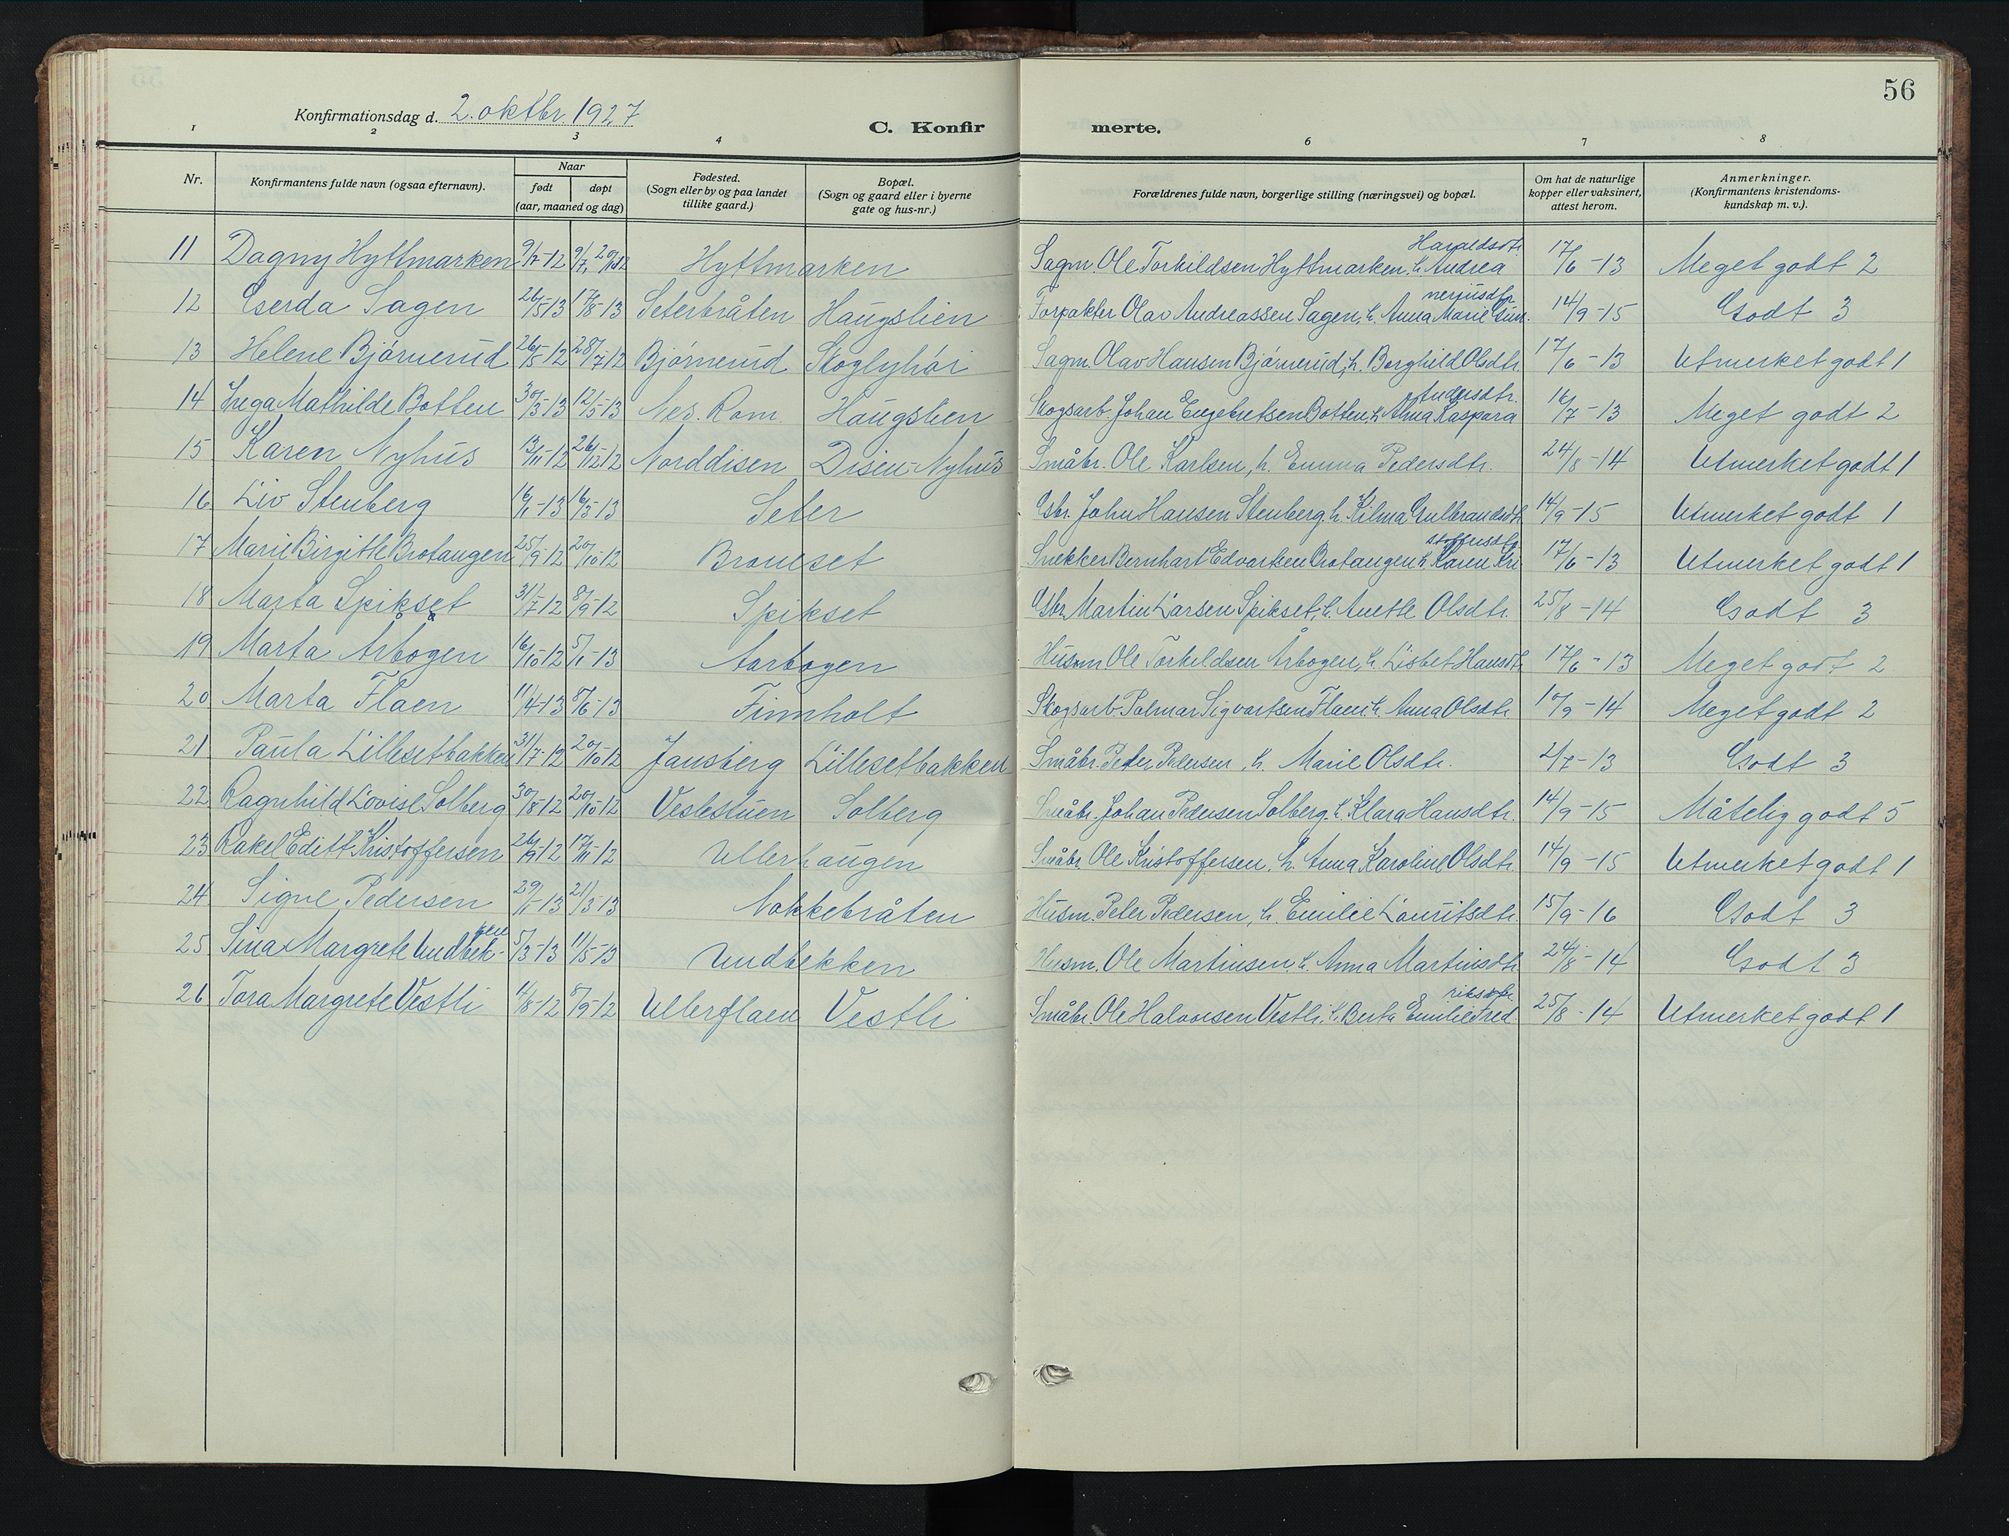 56
Konfirmationsdag d. 2. oktbr. 1927
C. Konfir merte.
1 2 3 4 6 7 8
Nr. Konfirmantens fulde navn (ogsaa efternavn). Naar født døpt (aar, maaned og dag) Fødested. (Sogn eller by og paa landet tillike gaard.) Bopæl. (Sogn og gaard eller i byerne gate og hus-nr.) Forældrenes fulde navn, borgerlige stilling (næringsvei) og bopæl. Om hat de naturlige kopper eller vaksinert, attest herom. Anmerkninger. (Konfirmantens kristendoms-kundskap m. v.).
11 Dagny Hyttmarken 9/7-12 Hyttmarken Sagm. Ole Torkildsen Hyttmarken, h. Andrea Haraldsdtr. 17/6-13 Meget godt 2
12 Gerda Sagen 26/5-13 17/8-13 Seterbråten Haugslien Forpakter Olav Andreassen Sagen, h. Anna Marie Gun.neriusdtr 14/9-15 Godt 3
13 Helene Bjørnerud 26/5-12 28/7-12 Bjørnerud Skoglyhøi Sagm. Olav Hansen Bjørnerud, h. Borghild Olsdtr. 17/6-13 Utmerket godt 1
14 Inga Mathilde Botten 30/3-13 12/5-13 Nes. Rom. Haugslien Skogsarb. Johan Engebretsen Botten, h. Anna Kaspara Andersdtr. 16/7-13 Meget godt 2
15 Karen Nyhus 13/11-12 26/12-12 Norddisen Disen-Nyhus Småbr. Ole Karlsen, h. Emma Pedersdtr. 24/8-14 Utmerket godt 1
16 Liv Stenberg 16/1-13 16/3-13 Seter Gbr. John Hansen Stenberg, h. Kilma Gulbrandsdtr 14/9-15 Utmerket godt 1
17 Marie Birgitte Brotangen 25/9-12 20/10-12 Broneset Snekker Bernhart Edvartsen Brotangen h. Karen Kri stoffersdtr 17/6-13 Utmerket godt 1
18 Marta Spikset 31/7-12 8/9-12 Spikset Gbr. Martin Larsen Spikset, h. Anette Olsdtr. 25/8-14 Godt 3
19 Marta Årbogen 16/10-12 5/1-13 Aarbogen Husm Ole Torkildsen Årbogen, h. Lisbet Hansdtr 17/6-13 Meget godt 2
20 Marta Flaen 11/4-13 8/6-13 Finnholt Skogsarb. Palmar Sigvartsen Flaen, h. Anna Olsdtr. 10/9-14 Meget godt 2
21 Paula Lillesetbakken 31/7-12 20/10-12 Jansberg Lillesetbakken Småbr. Peder Pedersen, h. Marie Olsdtr. 2/7-13 Godt 3
22 Ragnhild Lovise Solberg 30/8-12 20/10-12 Veslestuen Solberg Småbr. Johan Pedersen Solberg, h. Klara Hansdtr. 14/9-15 Måtelig godt 5
23 Rakel Edith Kristoffersen 26/9-12 17/11-12 Ullerhaugen Småbr. Ole Kristoffersen, h. Anna Karoline Olsdtr. 14/9-15 Utmerket godt 1
24 Signe Pedersen 29/1-13 21/3-13 Nokkebråten Husm. Peter Pedersen, h. Emilie Lauritsdtr. 15/9-16 Godt 3
25 Sina Margrete Undbek-ken 5/3-13 11/5-13 Undbekken Husm. Ole Martinsen h. Anna Martinsdtr 24/8-14 Godt 3
26 Tora Margrete Vestli 11/8-12 8/9-12 Ullerflaen Vestli Småbr. Ole Halvorsen Vestli, h. Berta Emilie Fred riksdtr 25/8-14 Utmerket godt 1